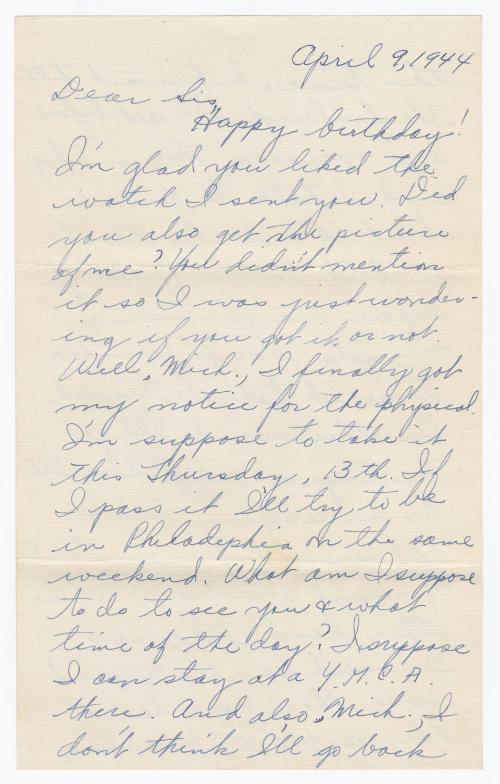 April 9, 1944
Dear Sis,
Happy birthday!
I'm glad you liked the
watch I sent you. Did
you also get the picture
of me? You didn't mention
it so I was just wonder-
ing if you got it or not.
Well, Mich., I finally got
my notice for the physical.
I'm suppose to take it
this Thursday, 13th. If
I pass it I'll try to be
in Philadephia on the same
weekend. What am I suppose
to do to see you & what
time of the day? I suppose
I can stay at a Y.M.C.A.
there. And also, Mich., I
don't think I'll go back